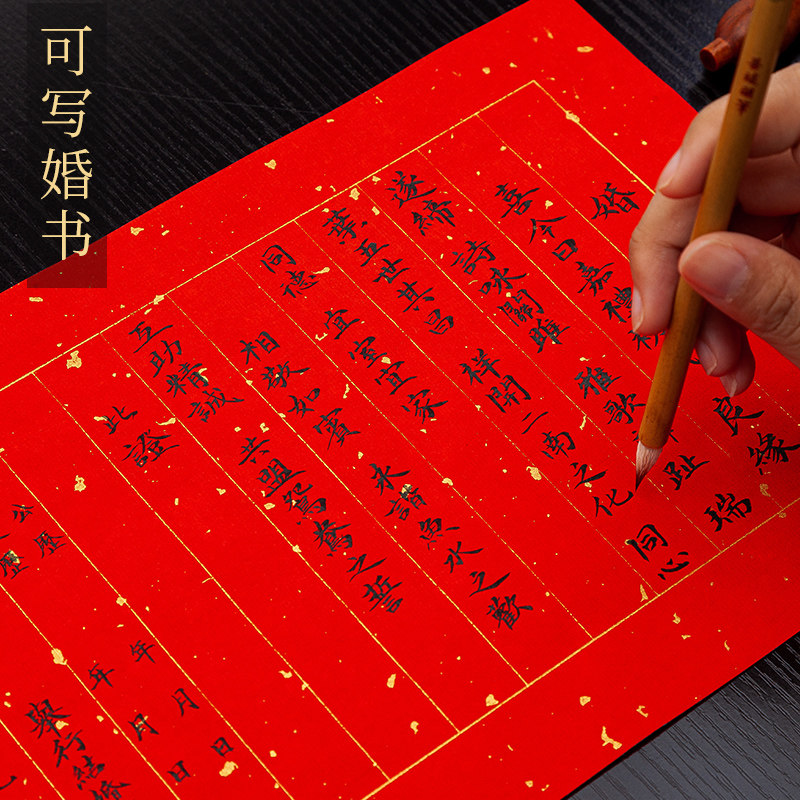 可写婚书
婚
喜今日嘉禮 良緣
遂締 詩咏關雎 雅歌 趾 瑞
葉五世其昌 祥開二南之化 同心
同德 宜室宜家
相敬如賓 永諧魚水之歡
互助精誠 共盟鴛鴦之誓
此證
公歷 年月日
歷 年月日
舉行結婚